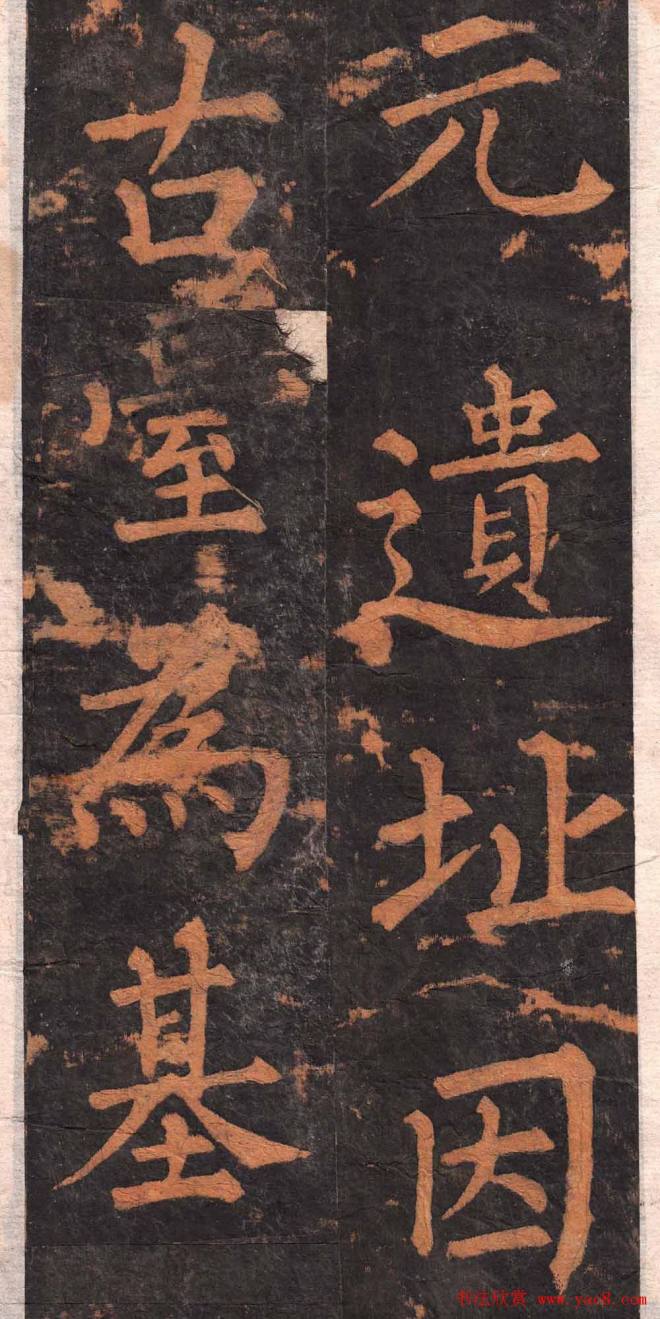 元遺址因
古臺為基
书法欣赏 www.yac8.com